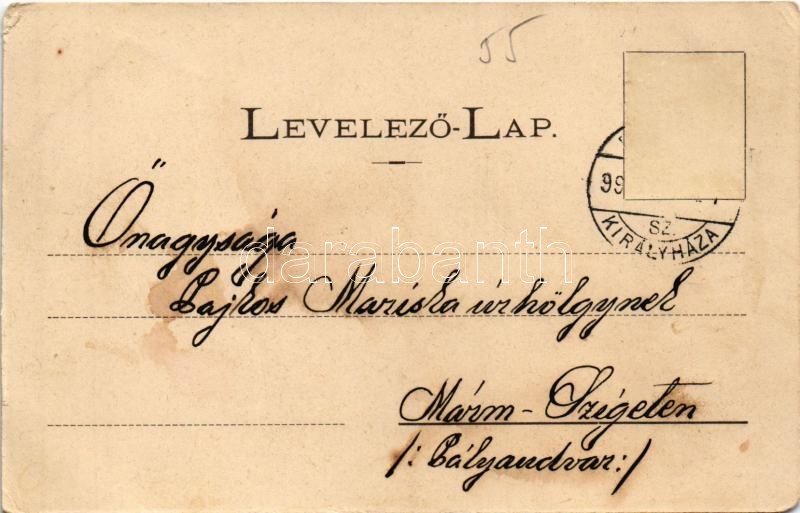 55
LEVELEZŐ-LAP.
99
SZ.
KIRÁLYHÁZA
Őnagysága
darabanth
Lajkos Mariska úrhölgynek
Márm-Szigeten
/: Pályaudvar :/